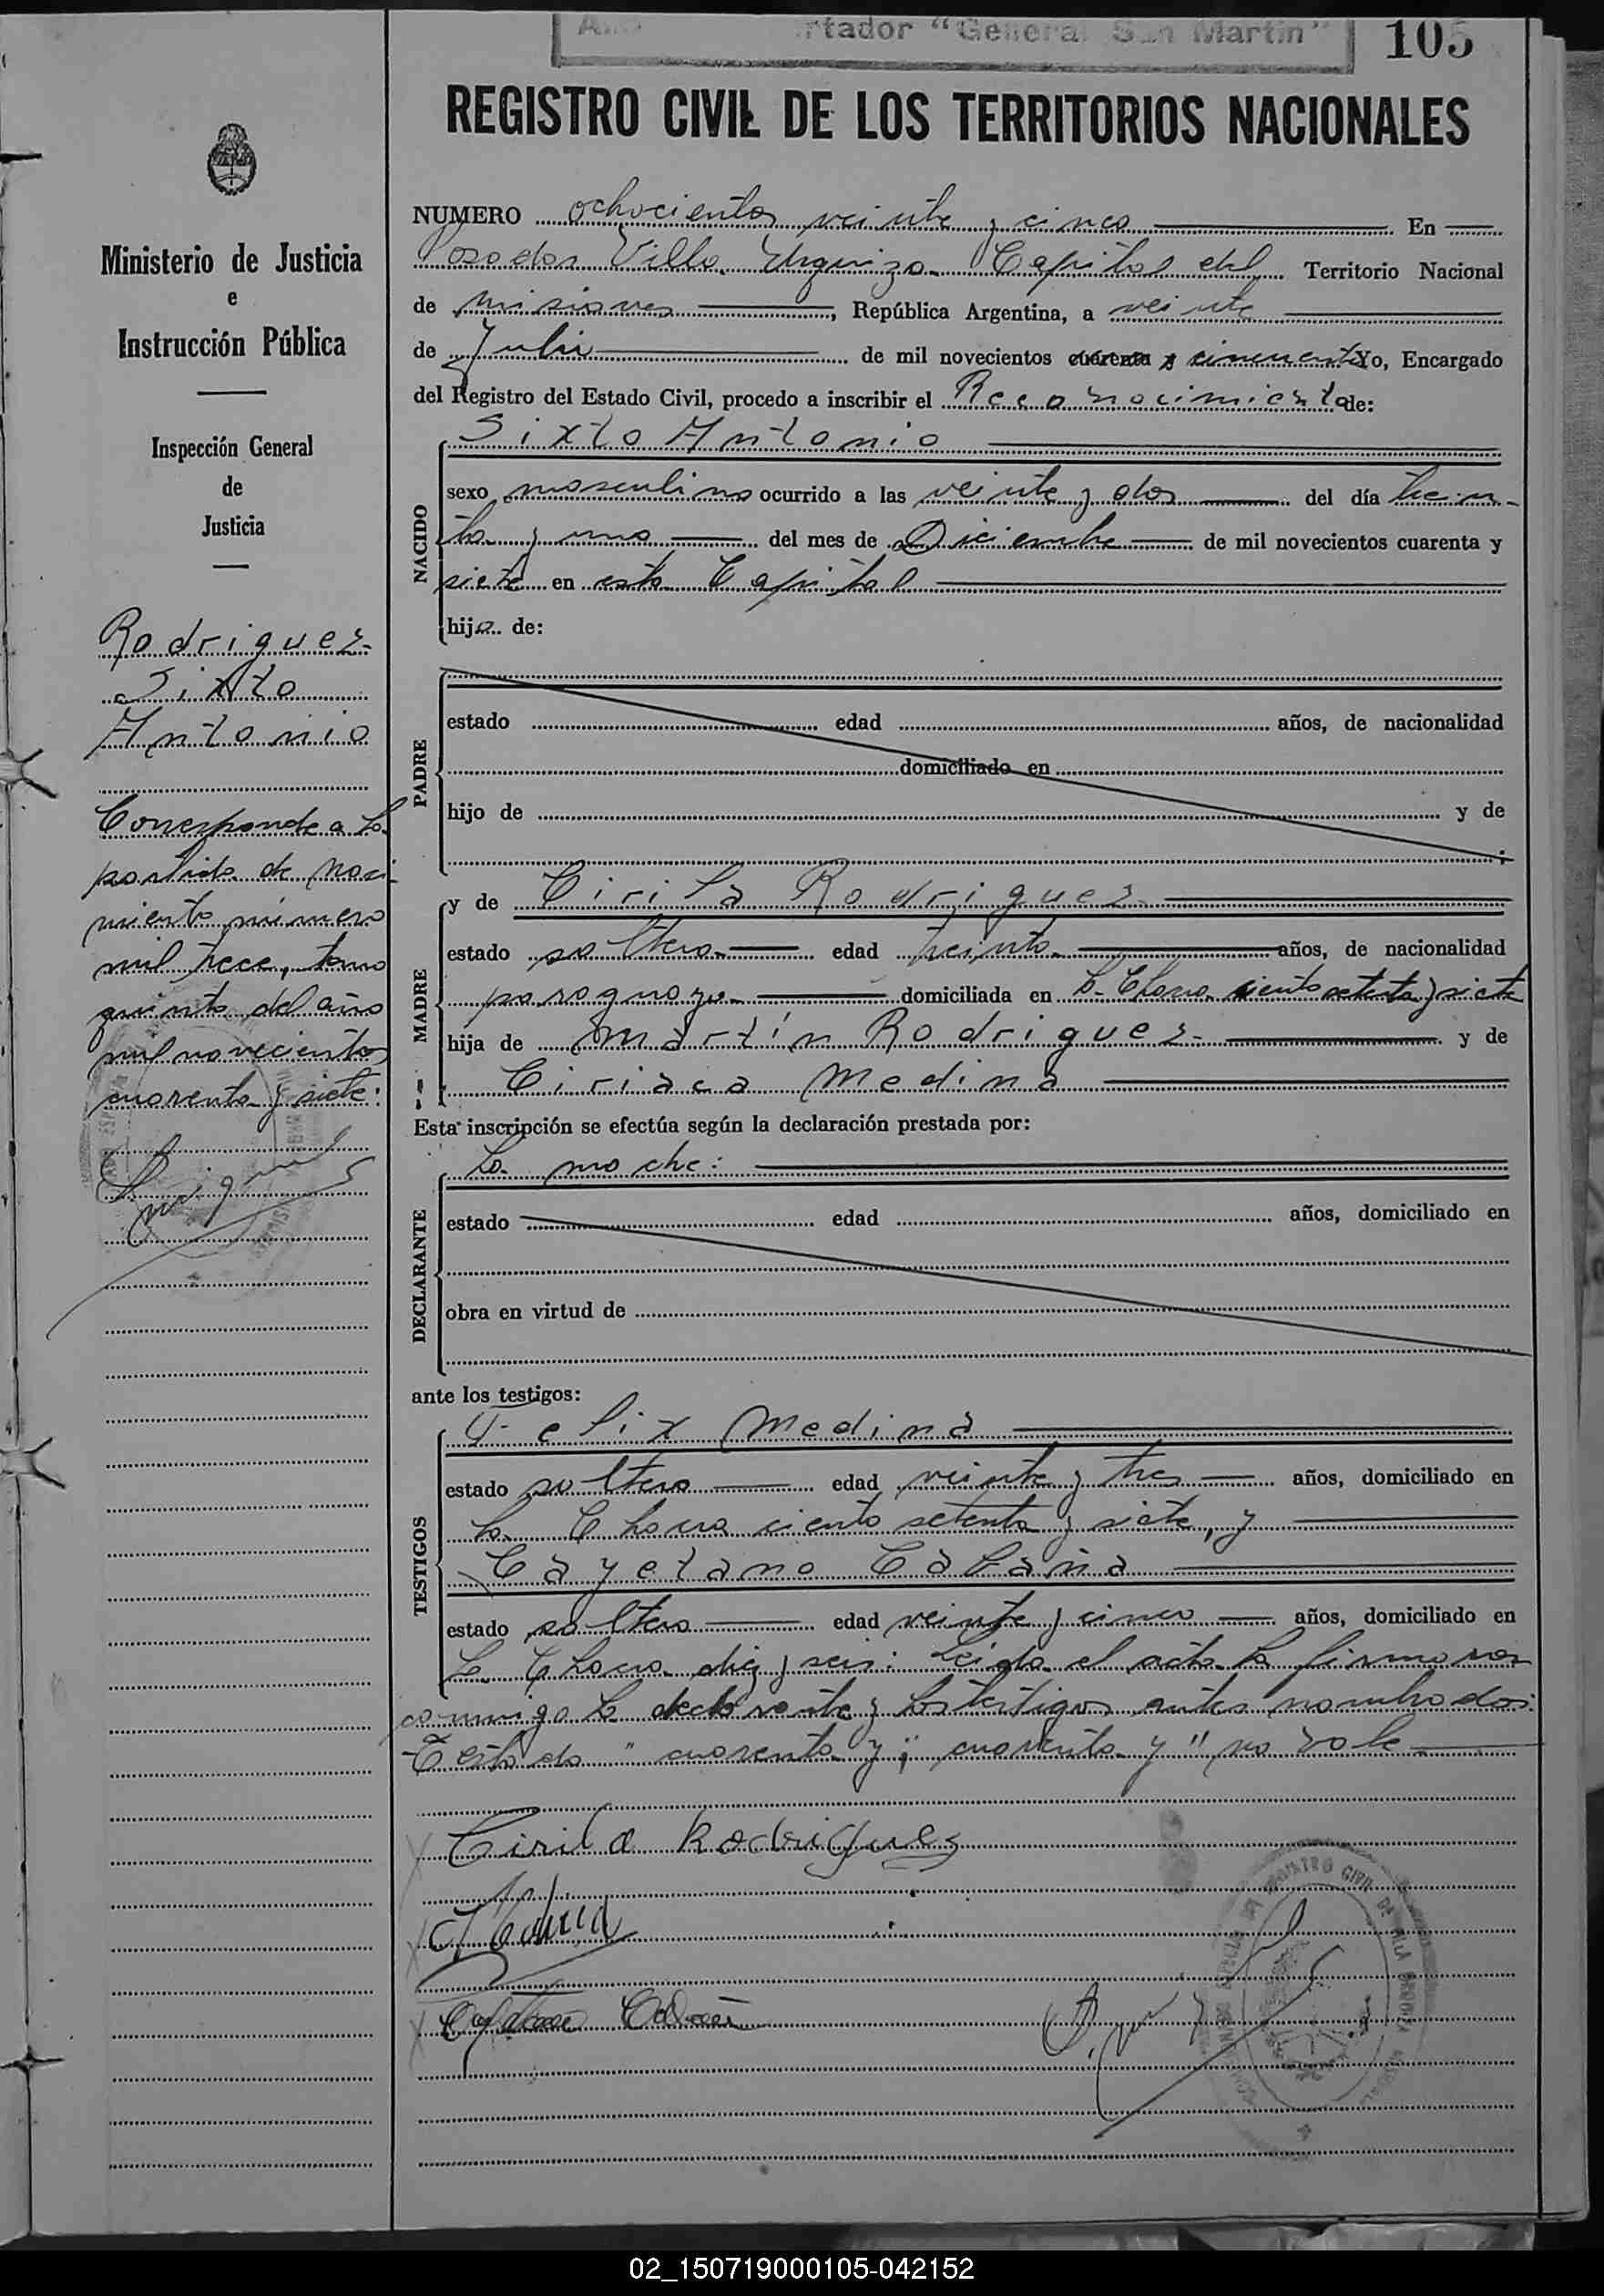 rtador "General San Martin"
105
REGISTRO CIVIL DE LOS TERRITORIOS NACIONALES
Ministerio de Justicia
e
Instrucción Pública
Inspección General
de
Justicia
Rodriguez
Sixto
Antonio
Corresponde a la
partida de naci
miento número
mil trece, tomo
quinto del año
mil novecientos
cuarenta y siete:
NUMERO ochocientos veinte y cinco En
Posadas Villa Urquiza Capital del Territorio Nacional
de Misiones, República Argentina, a veinte
de Julio de mil novecientos cuarenta y cincuenta Yo, Encargado
del Registro del Estado Civil, procedo a inscribir el Reconocimiento de:
NACIDO
Sixto Antonio
sexo masculino ocurrido a las veinte y dos del día trein-
ta y uno del mes de Diciembre de mil novecientos cuarenta y
siete en esta Capital
hijo de:
PADRE
estado edad años, de nacionalidad
domiciliado en
hijo de y de
MADRE
y de Cirila Rodriguez
estado soltera edad treinta años, de nacionalidad
paraguaya domiciliada en la Chacra ciento setenta y siete
hija de Martín Rodriguez y de
Ciriaca Medina
Esta inscripción se efectúa según la declaración prestada por:
DECLARANTE
La madre:
estado edad años, domiciliado en
obra en virtud de
ante los testigos:
TESTIGOS
Felix Medina
estado soltero edad veinte y tres años, domiciliado en
la Chacra ciento setenta y siete, y
Cayetano Cabaña
estado soltero edad veinte y cinco años, domiciliado en
la Chacra diez y seis: Leida el acta la firmaron
conmigo la declarante y los testigos antes nombrados:
Testado "cuarenta y", "cuarenta y" no vale
Cirila Rodrigues
02_150719000105-042152